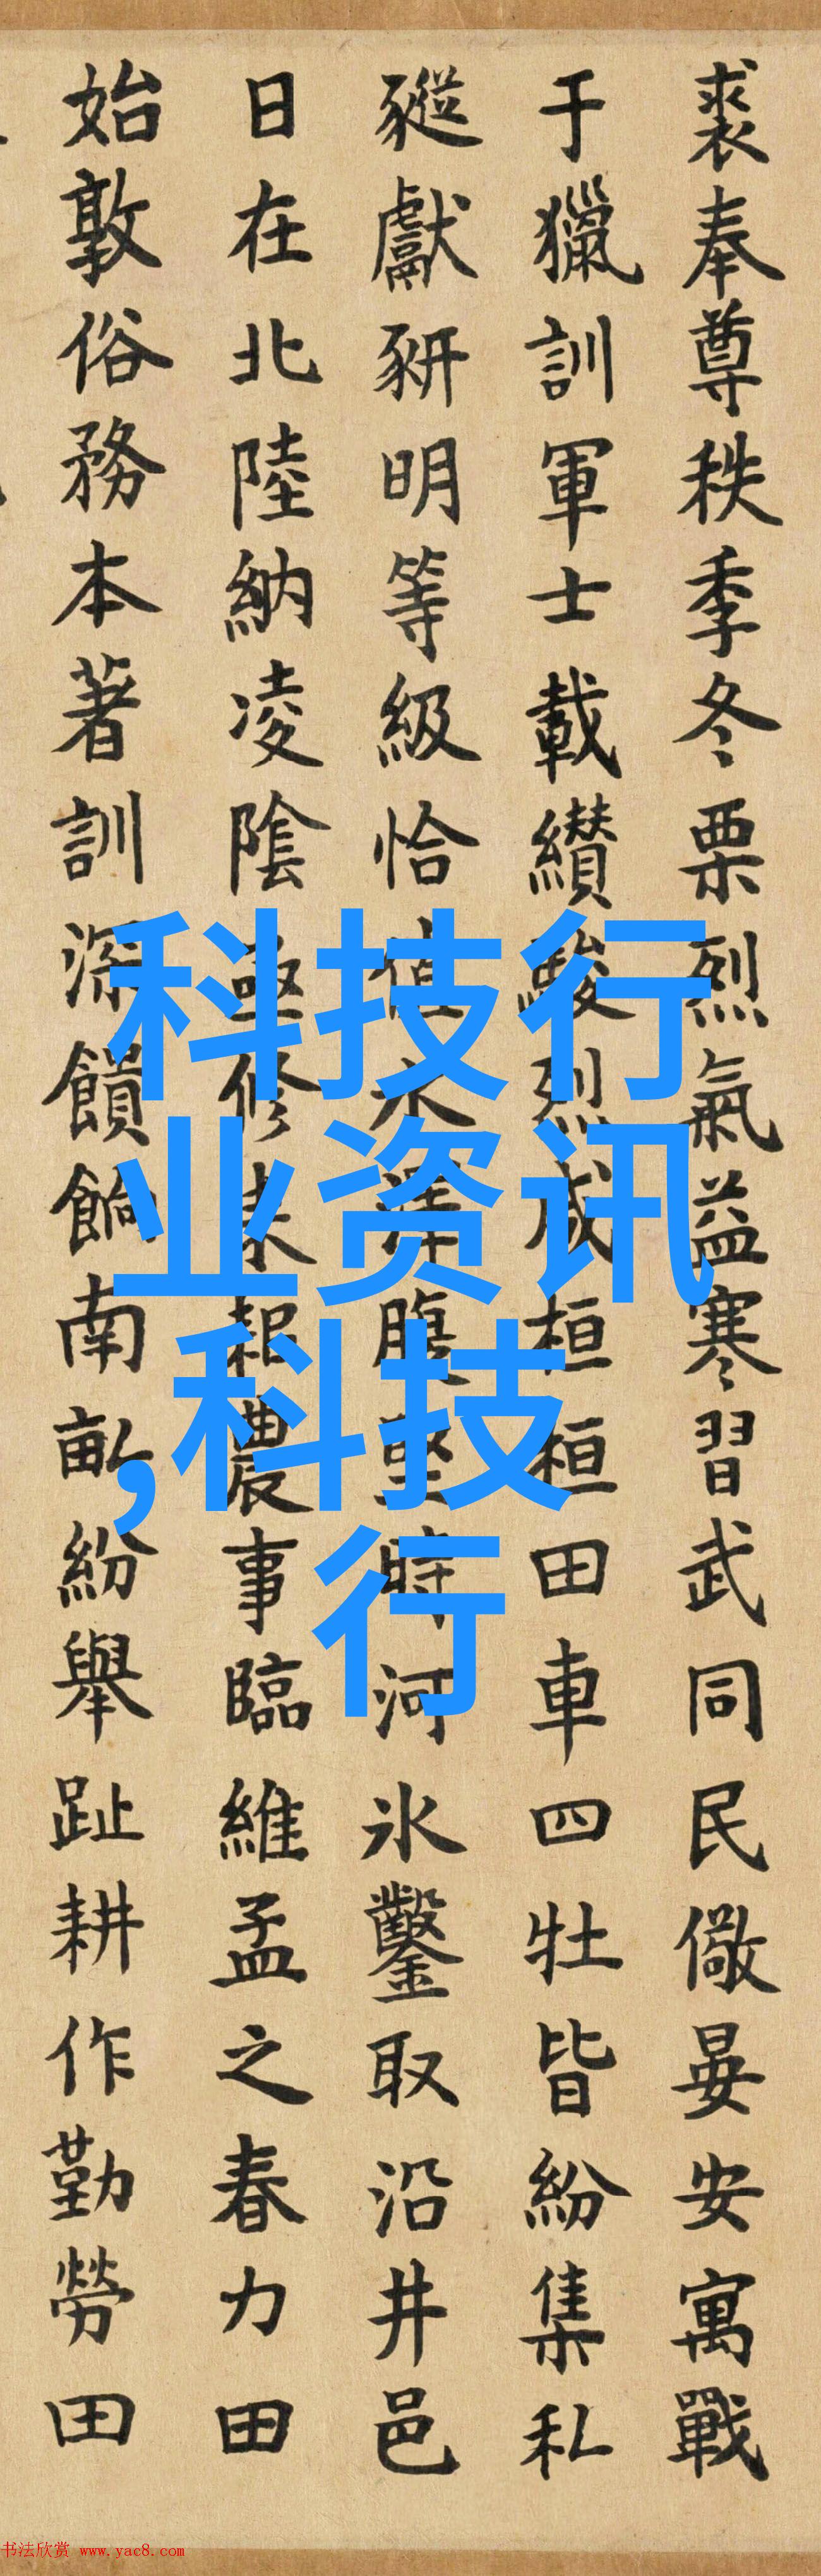 裘奉尊秩季冬栗烈氣益寒習武同民儆晏安寓戰
于獵訓軍士載纘駿烈咸桓桓田車四牡皆紛集私
豵獻豣明等級恰值水澤腹堅時河氷鑿取沿井邑
日在北陸納凌陰亟修耒耜農事臨維孟之春力田
始敦俗務本著訓深饋餉南畝紛舉趾耕作勤勞田
科技行
业资讯
,科技
行
书法欣赏 www.yac8.com